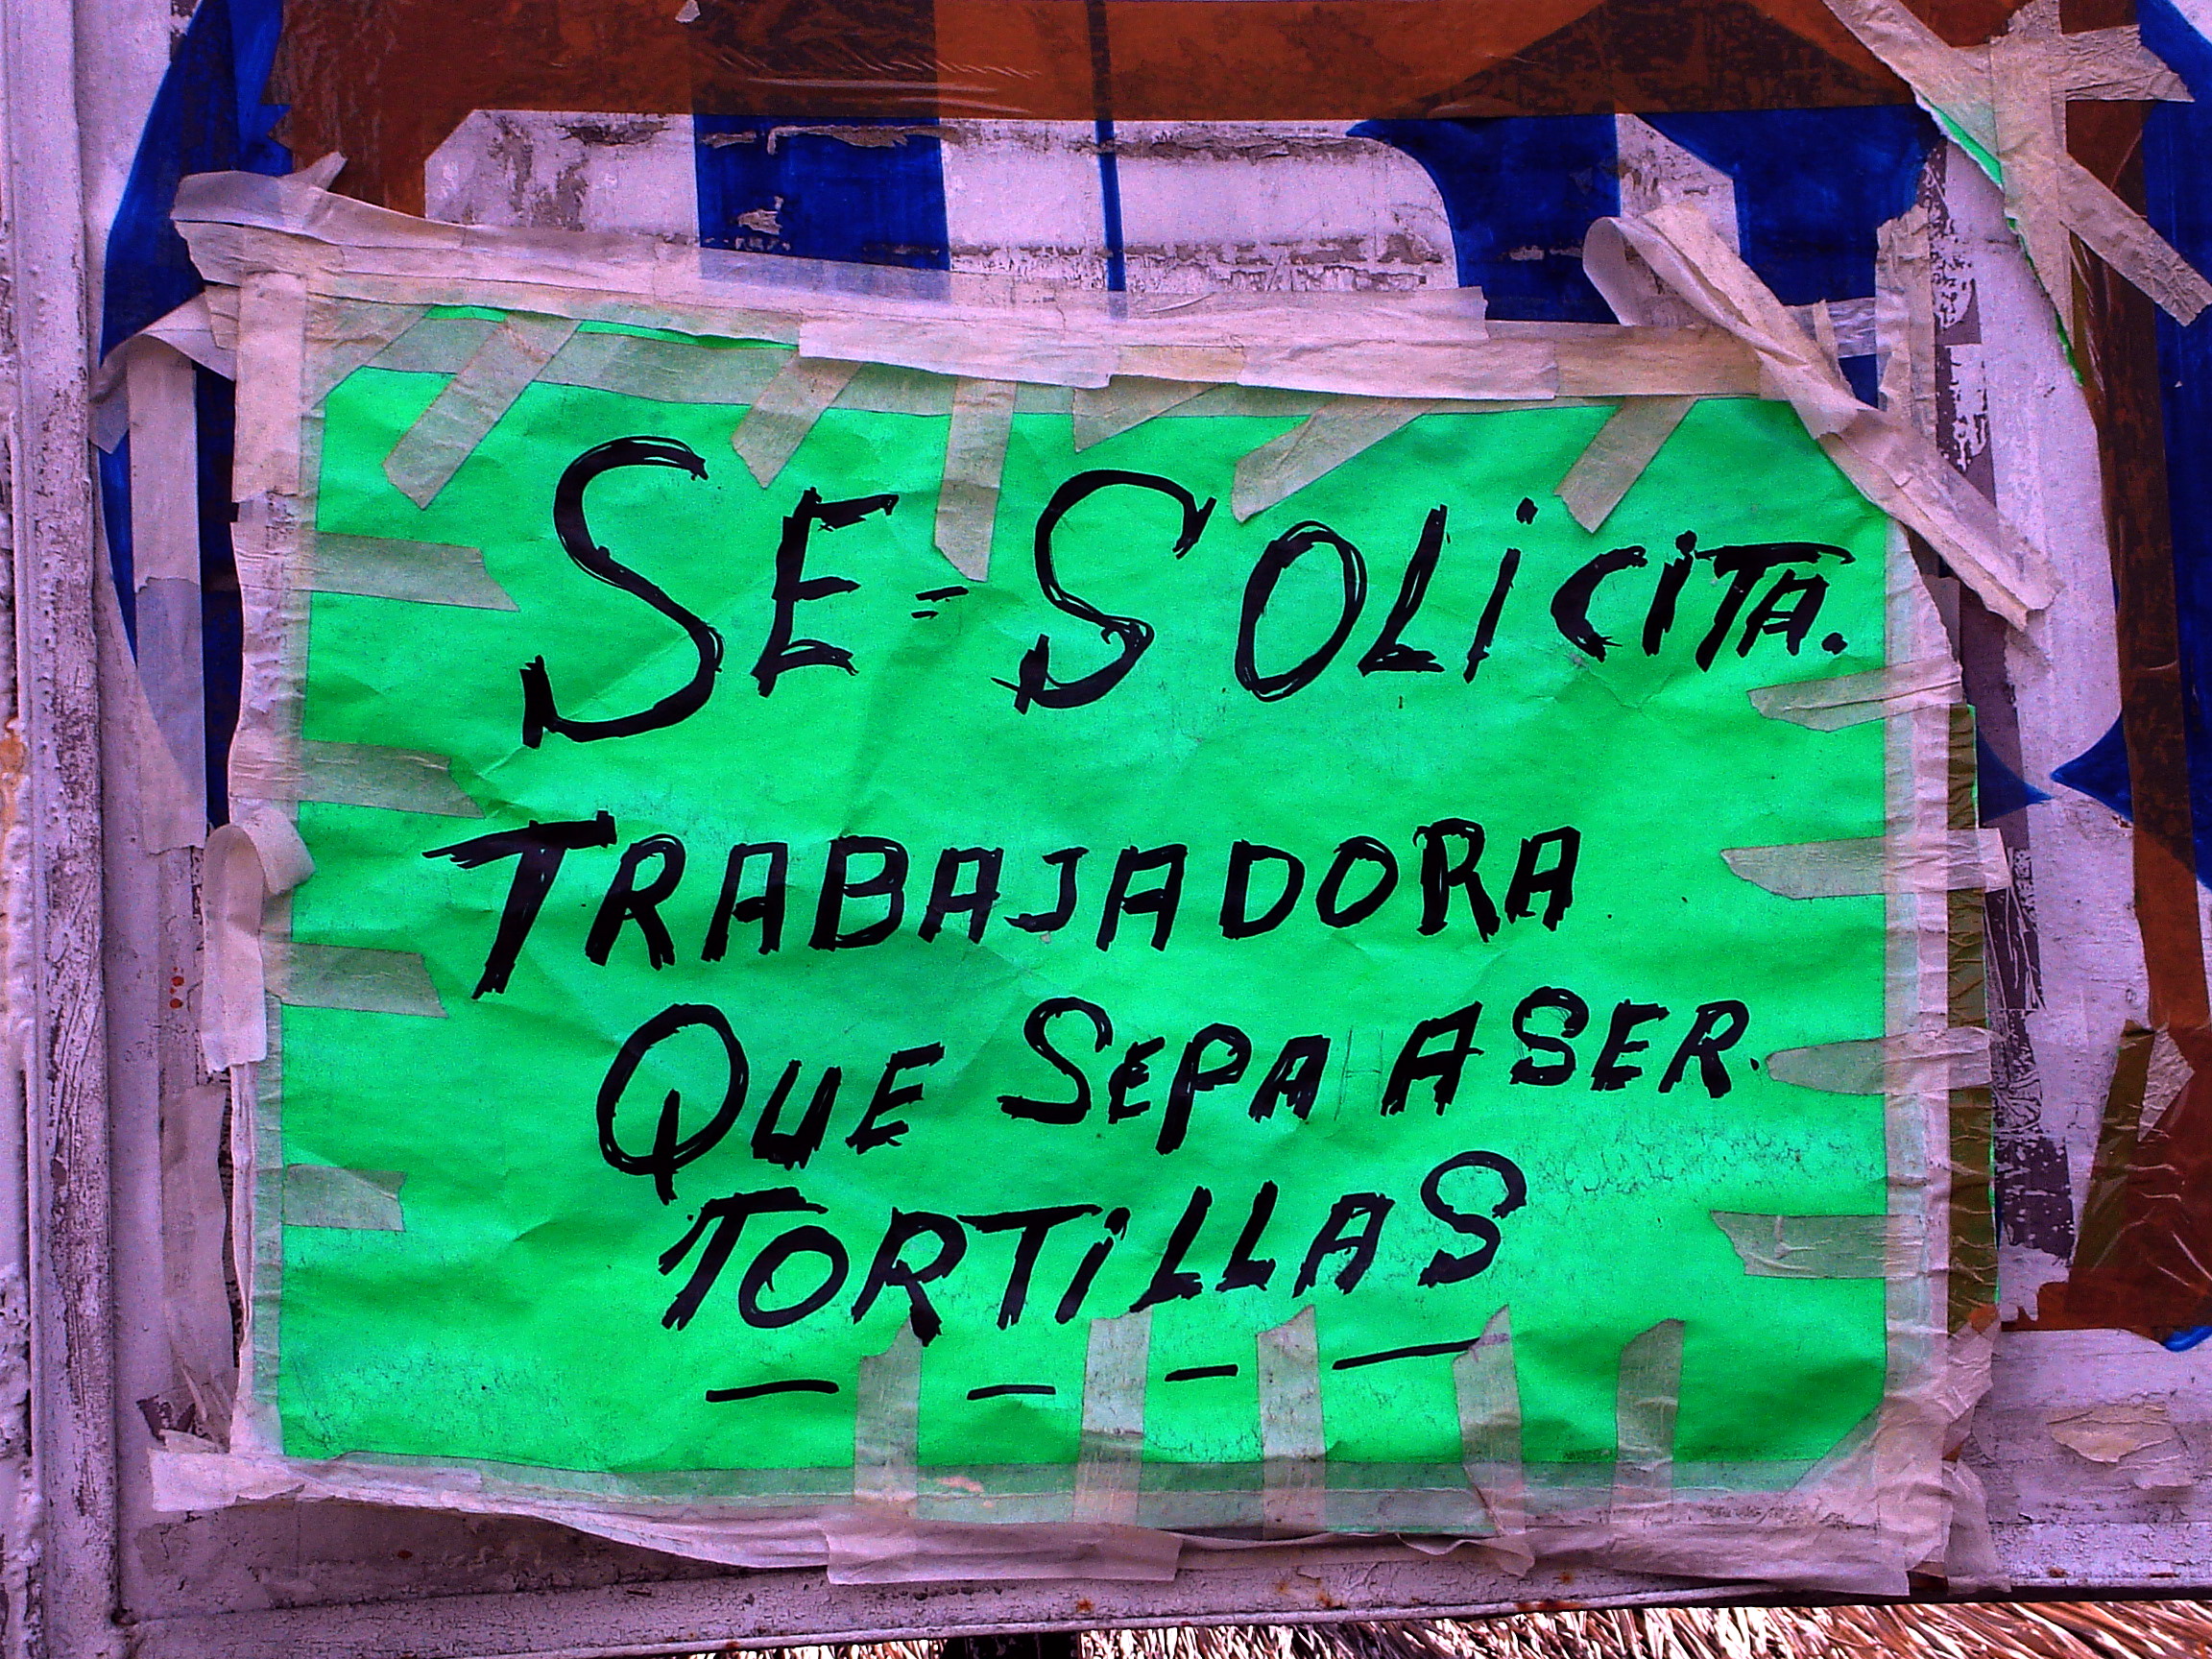 SE-SOLiCiTA.
TRABAJADORA
QUE SEPA ASER.
TORTiLLAS